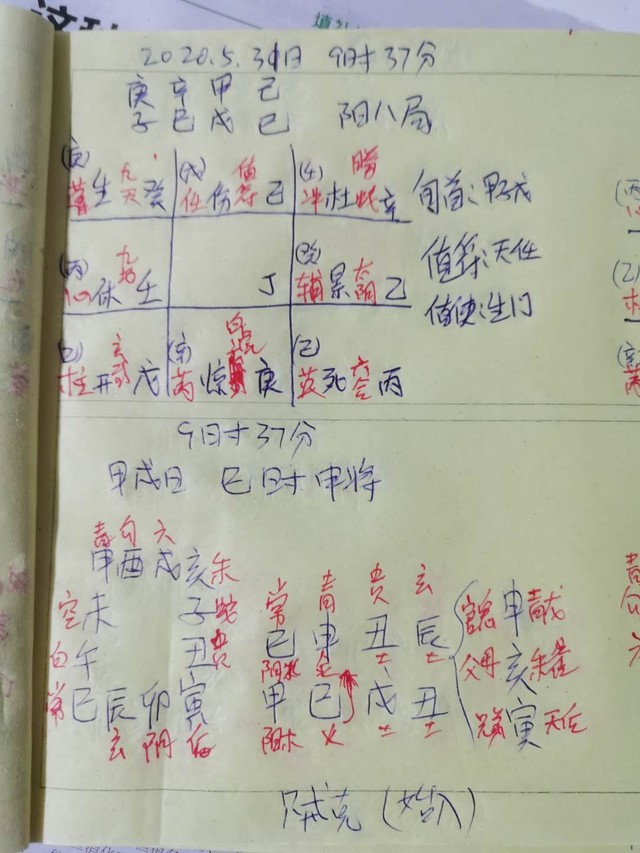 2020.5.31日 9时37分
庚 辛 甲 己
子 巳 戌 巳 阳八局
(庚) 九天 生 癸 (戊) 值符 任 伤 己 (壬) 腾蛇 冲 杜 辛 旬首:甲戌
(丙) 九地 心 休 壬 丁 (癸) 太阴 辅 景 乙 值符:天任
值使:生门
玄武 柱 开 戊 白虎 芮 惊 庚 (己) 六合 英 死 丙
9时37分
甲戌日 巳时申将
青 勾 六
申 酉 戌 亥 朱
空 未 子 蛇 常 青 贵 玄
白 午 丑 贵 巳 申 丑 辰
常 巳 辰 卯 寅 甲 巳 戌 丑
玄 阴 后 阳木 火 土 土
官鬼 申 青龙
父母 亥 朱雀
兄弟 寅 天后
只成克(始入)